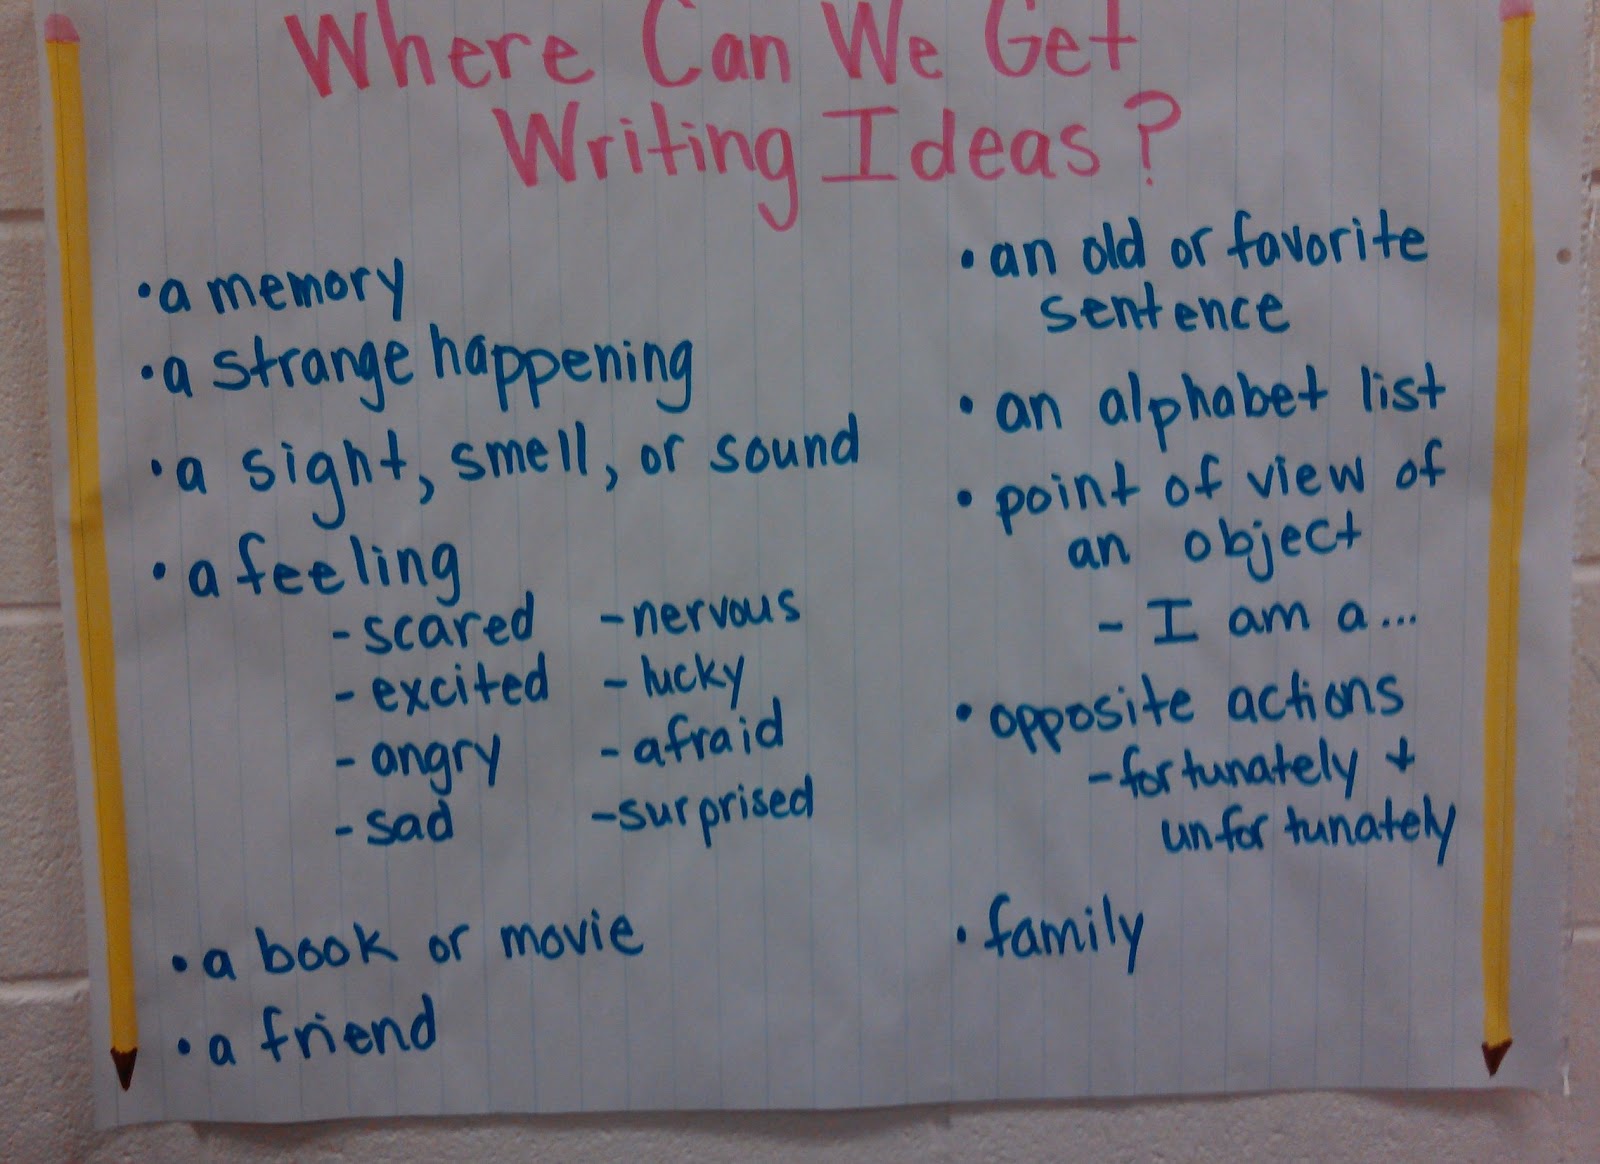 Where Can We Get
Writing Ideas?
• a memory
• a strange happening
• a sight, smell, or sound
• a feeling
- scared - nervous
- excited - lucky
- angry - afraid
- sad - surprised
• a book or movie
• a friend
• an old or favorite
sentence
• an alphabet list
• point of view of
an object
- I am a...
• opposite actions
- fortunately +
unfortunately
• family